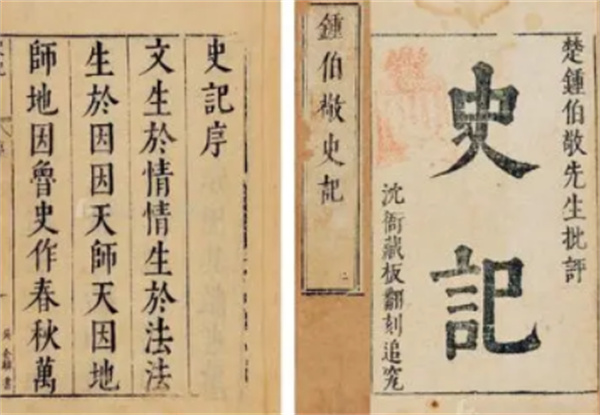 史記序
文生於情情生於法法
生於因因天師天因地
師地因魯史作春秋萬
鍾伯敬史記
楚鍾伯敬先生批評
史記
沈衙藏板翻刻追究